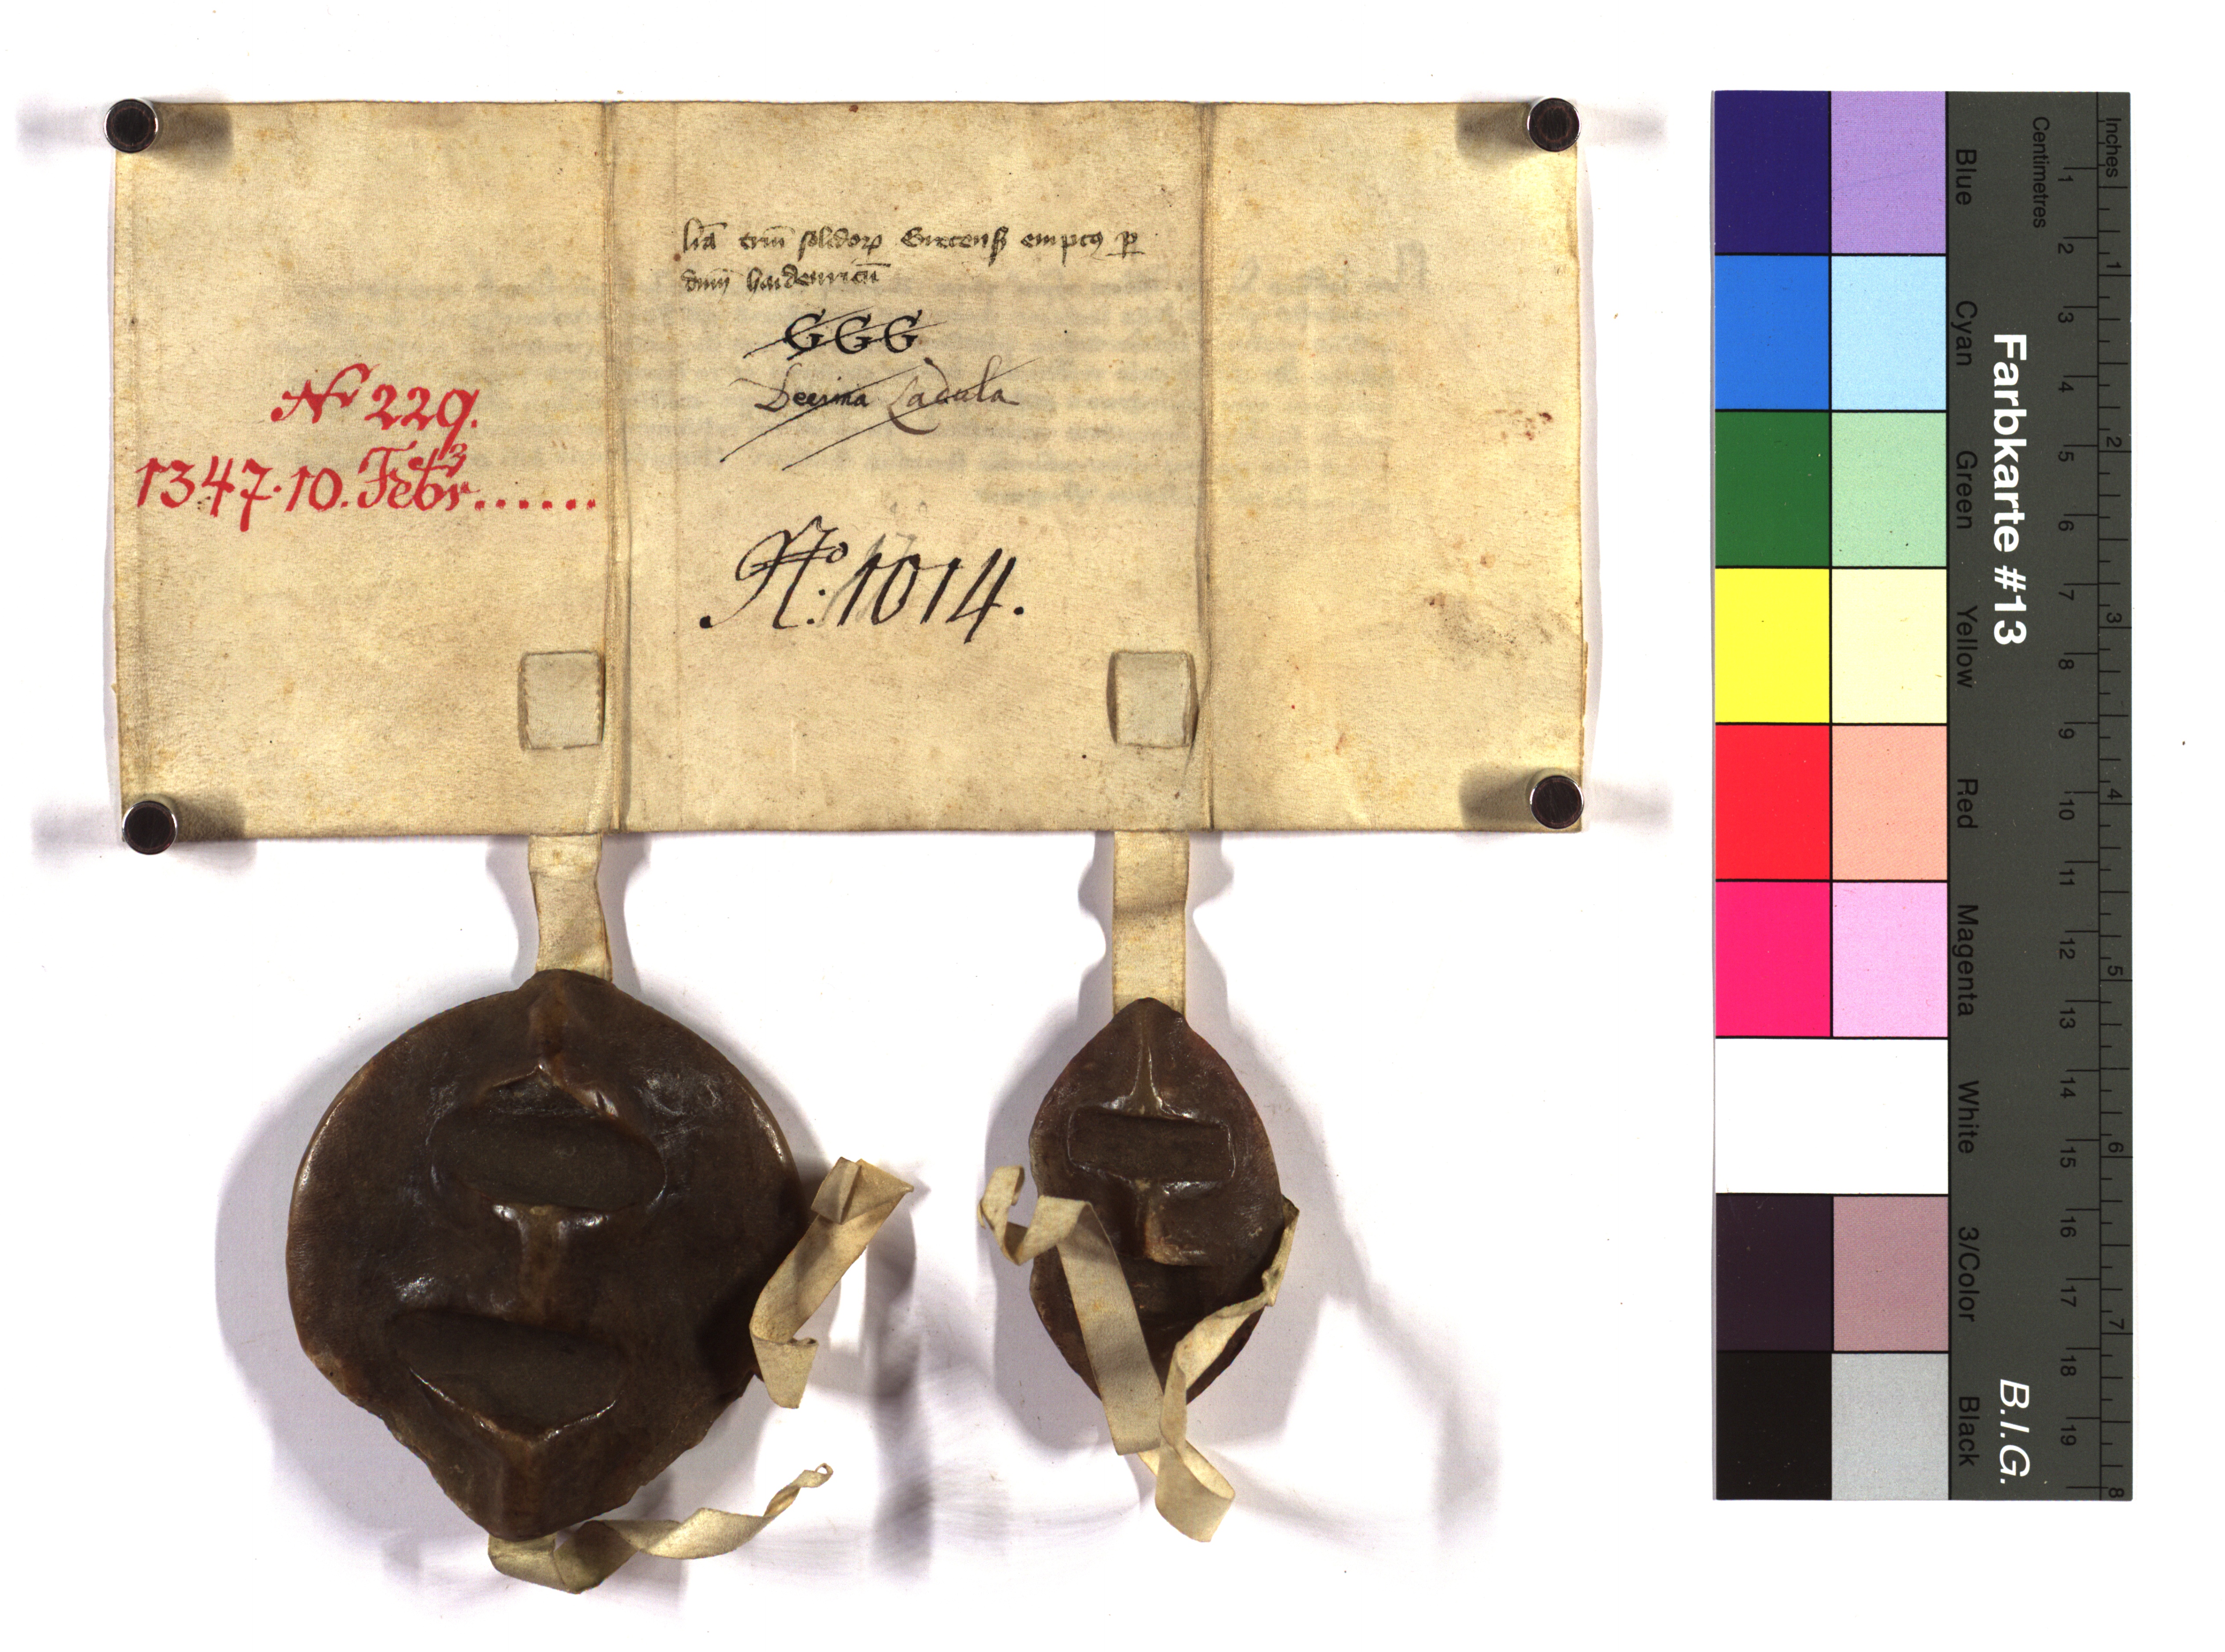 lr̄a triū solidoꝝ Gretens emptoꝝ p
dnm̄ haidenricū
GGG
Decima Ladula
Nº 1014.
Nr 229.
1347. 10. Febr......
3
Farbkarte #13
B.I.G.
Inches
Centimetres
1 2 3 4 5 6 7 8 9 10 11 12 13 14 15 16 17 18 19
1 2 3 4 5 6 7 8
Blue
Cyan
Green
Yellow
Red
Magenta
White
3/Color
Black